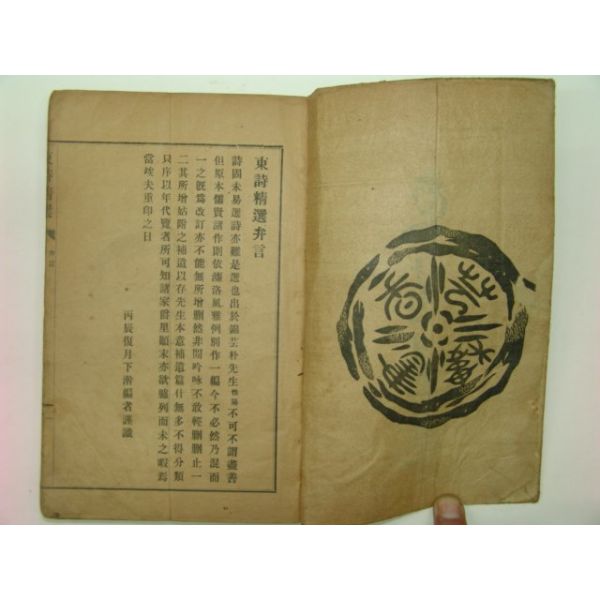 東詩精選弁言
詩固未易選詩亦難是選也出於錦芸朴先生不可不謂盡善
但原本儒賢諸作則依濂洛風雅例別作一編今不必然乃混而
一之旣爲改訂亦不能無所增刪然非閒吟咏不敢輕刪刪止一
二其所增姑附之補遺以存先生本意補遺篇什無多不得分類
只序以年代覽者所可知諸家爵里顚末亦欲臚列而未之暇焉
當竢夫重印之日
丙辰復月下澣編者謹識